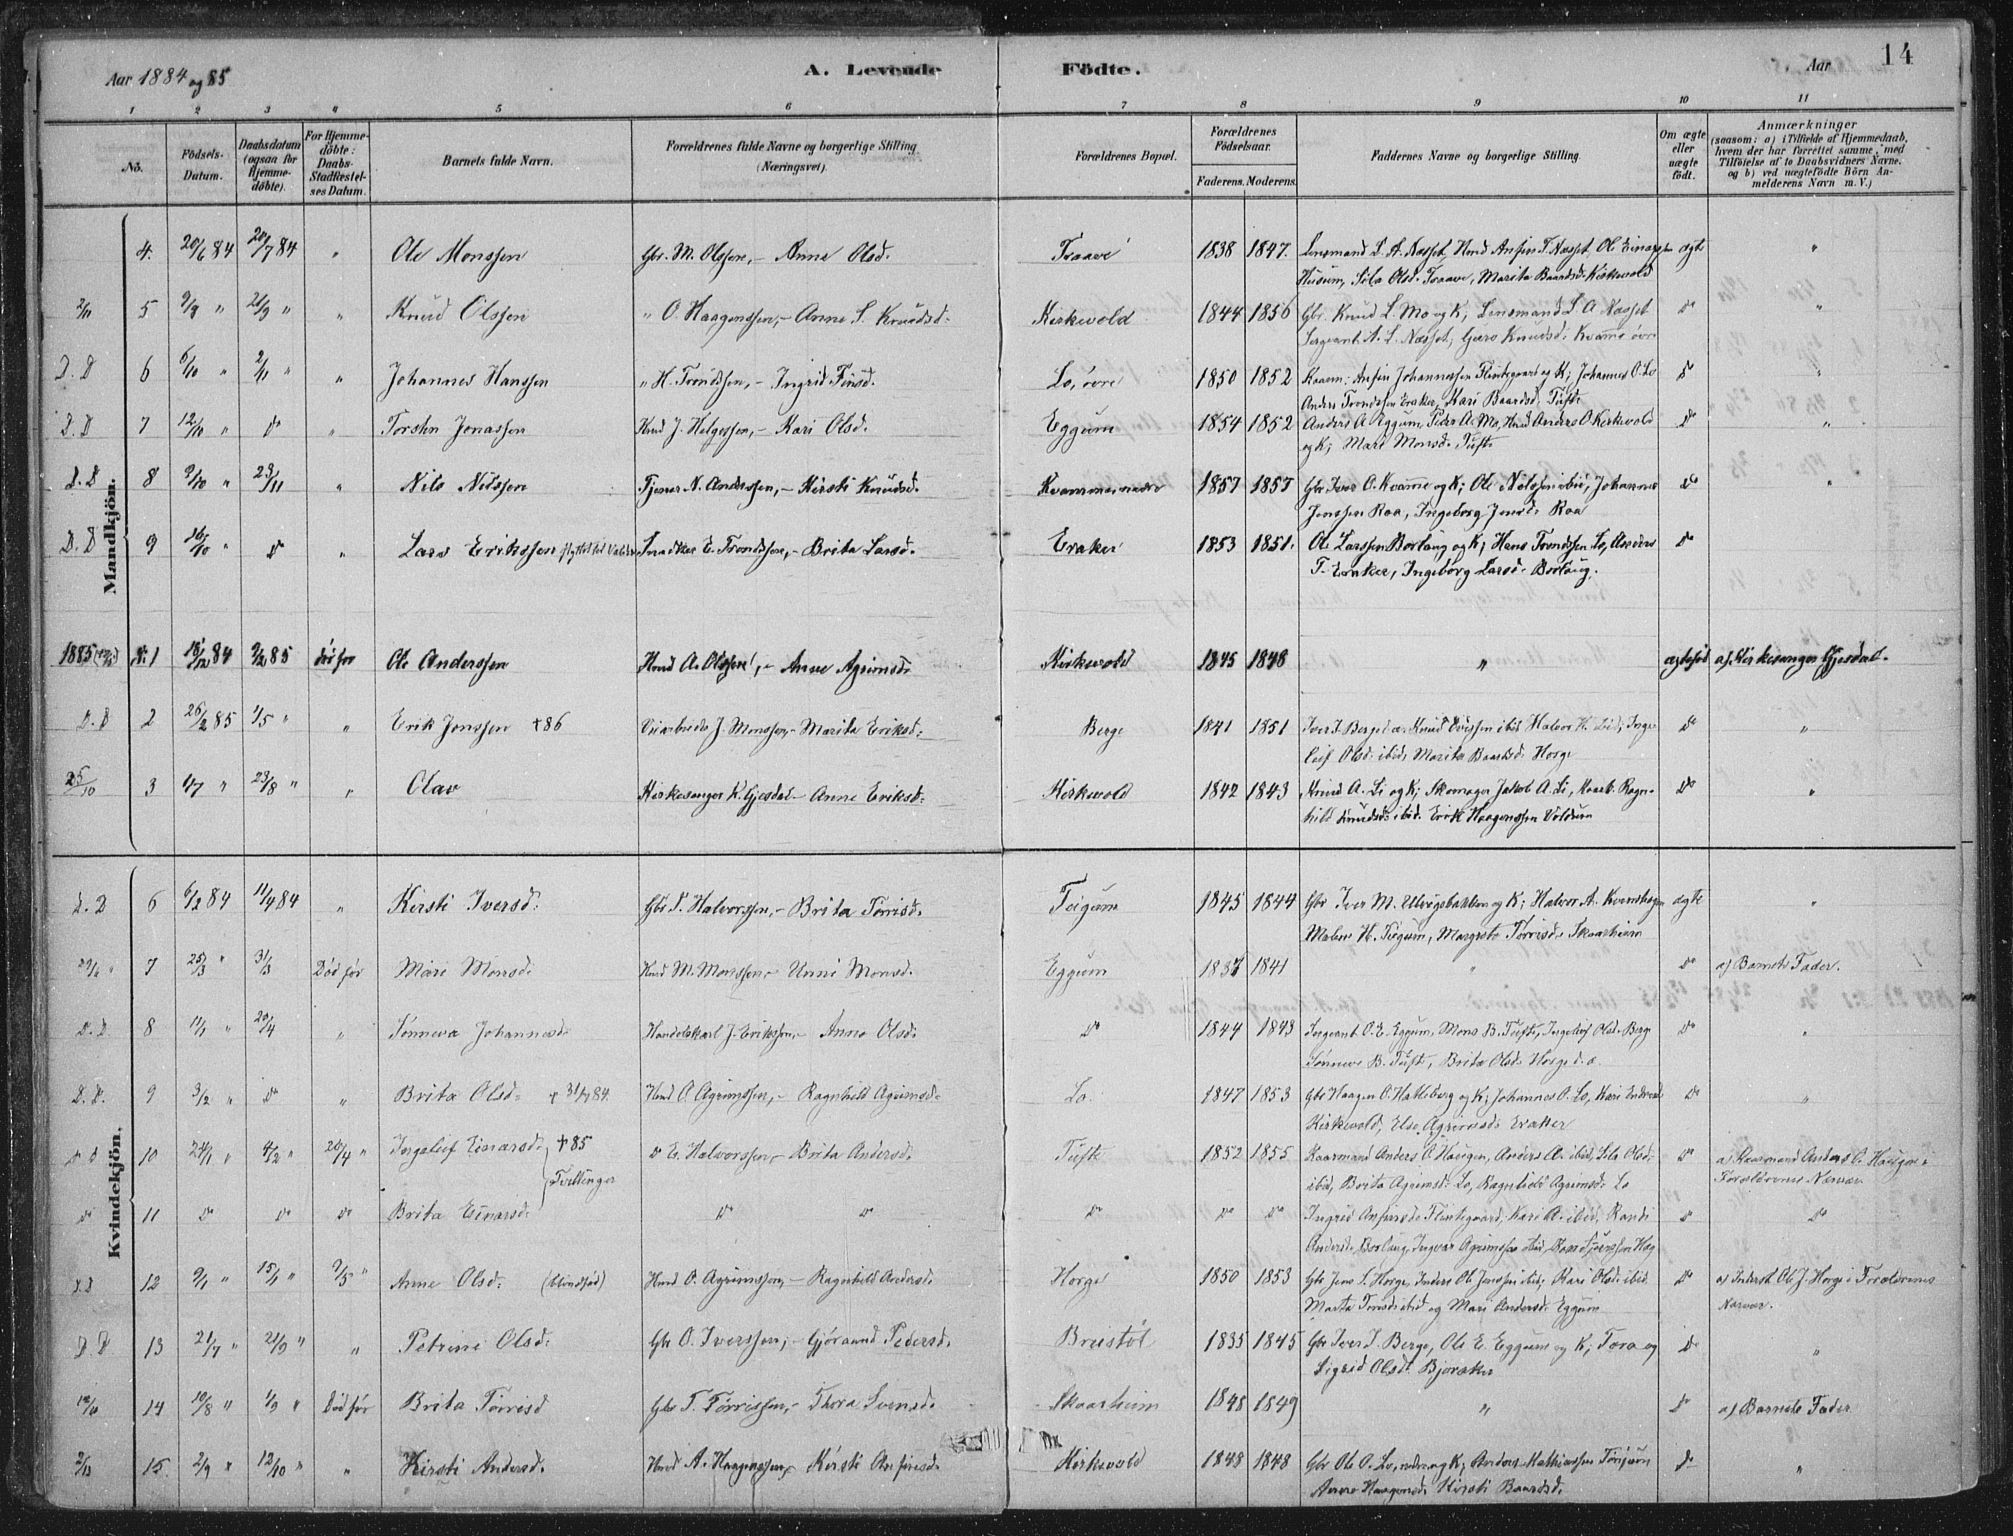 Aar 1884 og 85
A. Levende Fødte.
Aar
14
1 2 3 4 5 6 7 8 9 10 11
No.
Fødsels-Datum.
Daabsdatum (ogsaa for Hjemmedøbte).
For Hjemmedøbte: Daabs-Stadfæstelses Datum.
Barnets fulde Navn.
Forældrenes fulde Navne og borgerlige Stilling (Næringsvei).
Forældrenes Bopæl.
Forældrenes Fødselsaar.
Faderens. Moderens.
Faddernes Navne og borgerlige Stilling
Om ægte eller uægte født.
Anmærkninger (saasom: a) i Tilfælde af Hjemmedaab, hvem der har forrettet samme, med Tilføielse af to Daabsvidners Navne. og b) ved uægtefødte Børn Anmelderens Navn m. V.)
Mandkjøn.
4. 20/6 84 20/7 84 " Ole Monssen Gbr. M. Olssen, – Anne Olsd. Traave 1838 1847. Lensmand L. A. Næsset, Ole Einarssen ægte "
Husum, Sila Olsd. Traave, Marita Baardsd. Kirkevold
2/11 5 9/9 " 21/9 " " Knud Olssen " O. Haagenssen, – Anne S. Knudsd. Kirkevold 1844 1856 Gbr. Knud L. Mo og K; Lensmand L. A. Næsset dº "
Sergeant A. L. Næsset, Knudsd. Kvamme øvre
D. D 6 6/10 " 2/11 " " Johannes Hanssen " H. Trondssen, – Ingrid Finsd. Lo, øvre 1850 1852 Johannessen Flintegaard og K; Johannes O. Lo "
Anders Trondssen Eraker, Kari Baardsd. Tufte
D. D 7 12/10 " dº " Torsten Jonassen Hmd J. Helgessen, – Kari Olsd. Eggum 1854 1852 Anders A. Eggum, Peder A. Mo, Hmd Anders O. Kirkevold dº "
og K; Mari Monsd. Tufte
D. D 8 9/10 " 23/11 " Nils Nilssen Tjener N. Anderssen, – Kirsti Knudsd. 1857 1857 Gbr Iver O. Kvamme og K; Ole Nilssen ibid, Johannes dº "
Jonssen Roa, Ingeborg Jonsd. Roa
D. D 9 16/10 " dº " Lars Erikssen flyttet til Valders E. Trondssen, – Brita Larsd. Eraker 1853 1851. Ole Larssen Borlaug og K; Hans Trondssen Lo, Anders dº
T. Eraker, Ingeborg Larsd. Borlaug.
1885 N. 1 18/12 84 9/2 85 død før Ole Anderssen Hmd A. Olssen, – Anne Agrimsd. Kirkevold 1845 1848 " ægtefød a) Kirkesanger Gjesdal.
D. D 2 26/2 85 1/5 " " Erik Jonssen + 86 Veiarbeide J. Monssen, – Marita Eriksd. Berge 1841 1851 Iver I. Berge Knud ibid Halvor H. Li; Inge- dº "
leif Olsd. ibid, Marita Baardsd. Horge
25/10 3 1/7 " 23/8 " " Olav Kirkesanger K. Gjesdal – Anne Eriksd. Kirkevold 1842 1843 Knud A. Li og K; Skomager Jakob A. Li, Ragn- dº "
hild Knudsd. ibid. Erik Haagenssen Voldum
Kvindekjøn.
D. D 6 6/2 84 11/4 84 " Kirsti Iversd. Gbr I. Halvorssen, – Brita Torrisd. Teigum 1845 1844 Gbr Iver M. Ulvigsbakken og K; Halvor A. ægte "
Malene H. Teigum, Margrete Torrisd. Skaarheim
7 25/3 " 31/3 Død før Mari Monsd. Hmd M. Monssen – Unni Monsd. Eggum 1837 1841 " dº a) Barnets Fader.
D. D 8 11/1 " 20/4 " Sønneva Johannesd. Handelskarl J. Erikssen, – Anne Olsd. dº 1844 1843 Sergeant O. E. Eggum, Mons B. Tufte, Ingeleif Olsd. Berge dº "
Sønneve B. Tufte, Brita Olsd. Horge
D. D. 9 3/2 " dº " Brita Olsd. + 31/7 84. Hmd O. Agrimssen, – Ragnhild Agrimsd. Lo 1847 1853 Gbr Haagen O. Hatleberg og K; Johannes O. Lo, Kari dº "
Kirkevold, Else Agrimsd. Eraker
D D 10 24/1 " 4/2 " 20/4 " Ingeleif Einarsd. + 85 dº E. Halvorssen, – Brita Andersd. Tufte 1852 1855 Kaarmand Anders O. Haugen, Anders A. ibid, Sila Olsd. dº a) Kaarmand Anders O. Haugen i
Tvillinger ibid, Brita Agrimsd. Lo, Ragnhild Agrimsd. Lo Forældrenes Nærvær
dº 11 dº dº dº Brita Einarsd. dº dº dº dº dº Ingrid Flintegaard, Kari A. ibid, Randi dº dº
Andersd. Borlaug, Ingvar Agrimssen ibid,
D D 12 9/1 " 15/1 " 9/5 " Anne Olsd. (blindfød) Hmd O. Agrimssen, – Ragnhild Andersd. Horge 1850 1853 Gbr Jens S. Horge, Inderst Ole Jenssen ibid, Kari Olsd. ibid dº a) Inderst Ole J. Horge i Forældrenes
Marta ibid og Mari Andersd. Eggum Nærvær.
D. D. 13 21/7 " 21/9 " " Petrine Olsd. Gbr O. Iverssen, – Gjøraand Pedersd. Breistøl 1835 1845 Gbr Iver I. Berge, Ole E. Eggum og K; Tora og dº "
Sigrid Olsd. Bjoraker
14 10/8 " 1/9 " Død før Brita Torrisd Gbr T. Torrissen, – Thora Svensd. Skaarheim 1848 1849 " dº a) Barnets Fader
15. 2/9 " 12/10 " " Kirsti Andersd. Hmd A. Haagenssen, Kirsti Kirkevold 1848 1848 Gbr Ole O. Lo, nedre og K; Anders Mathiassen dº "
Anne Haagensd. Kirsti Baardsd.